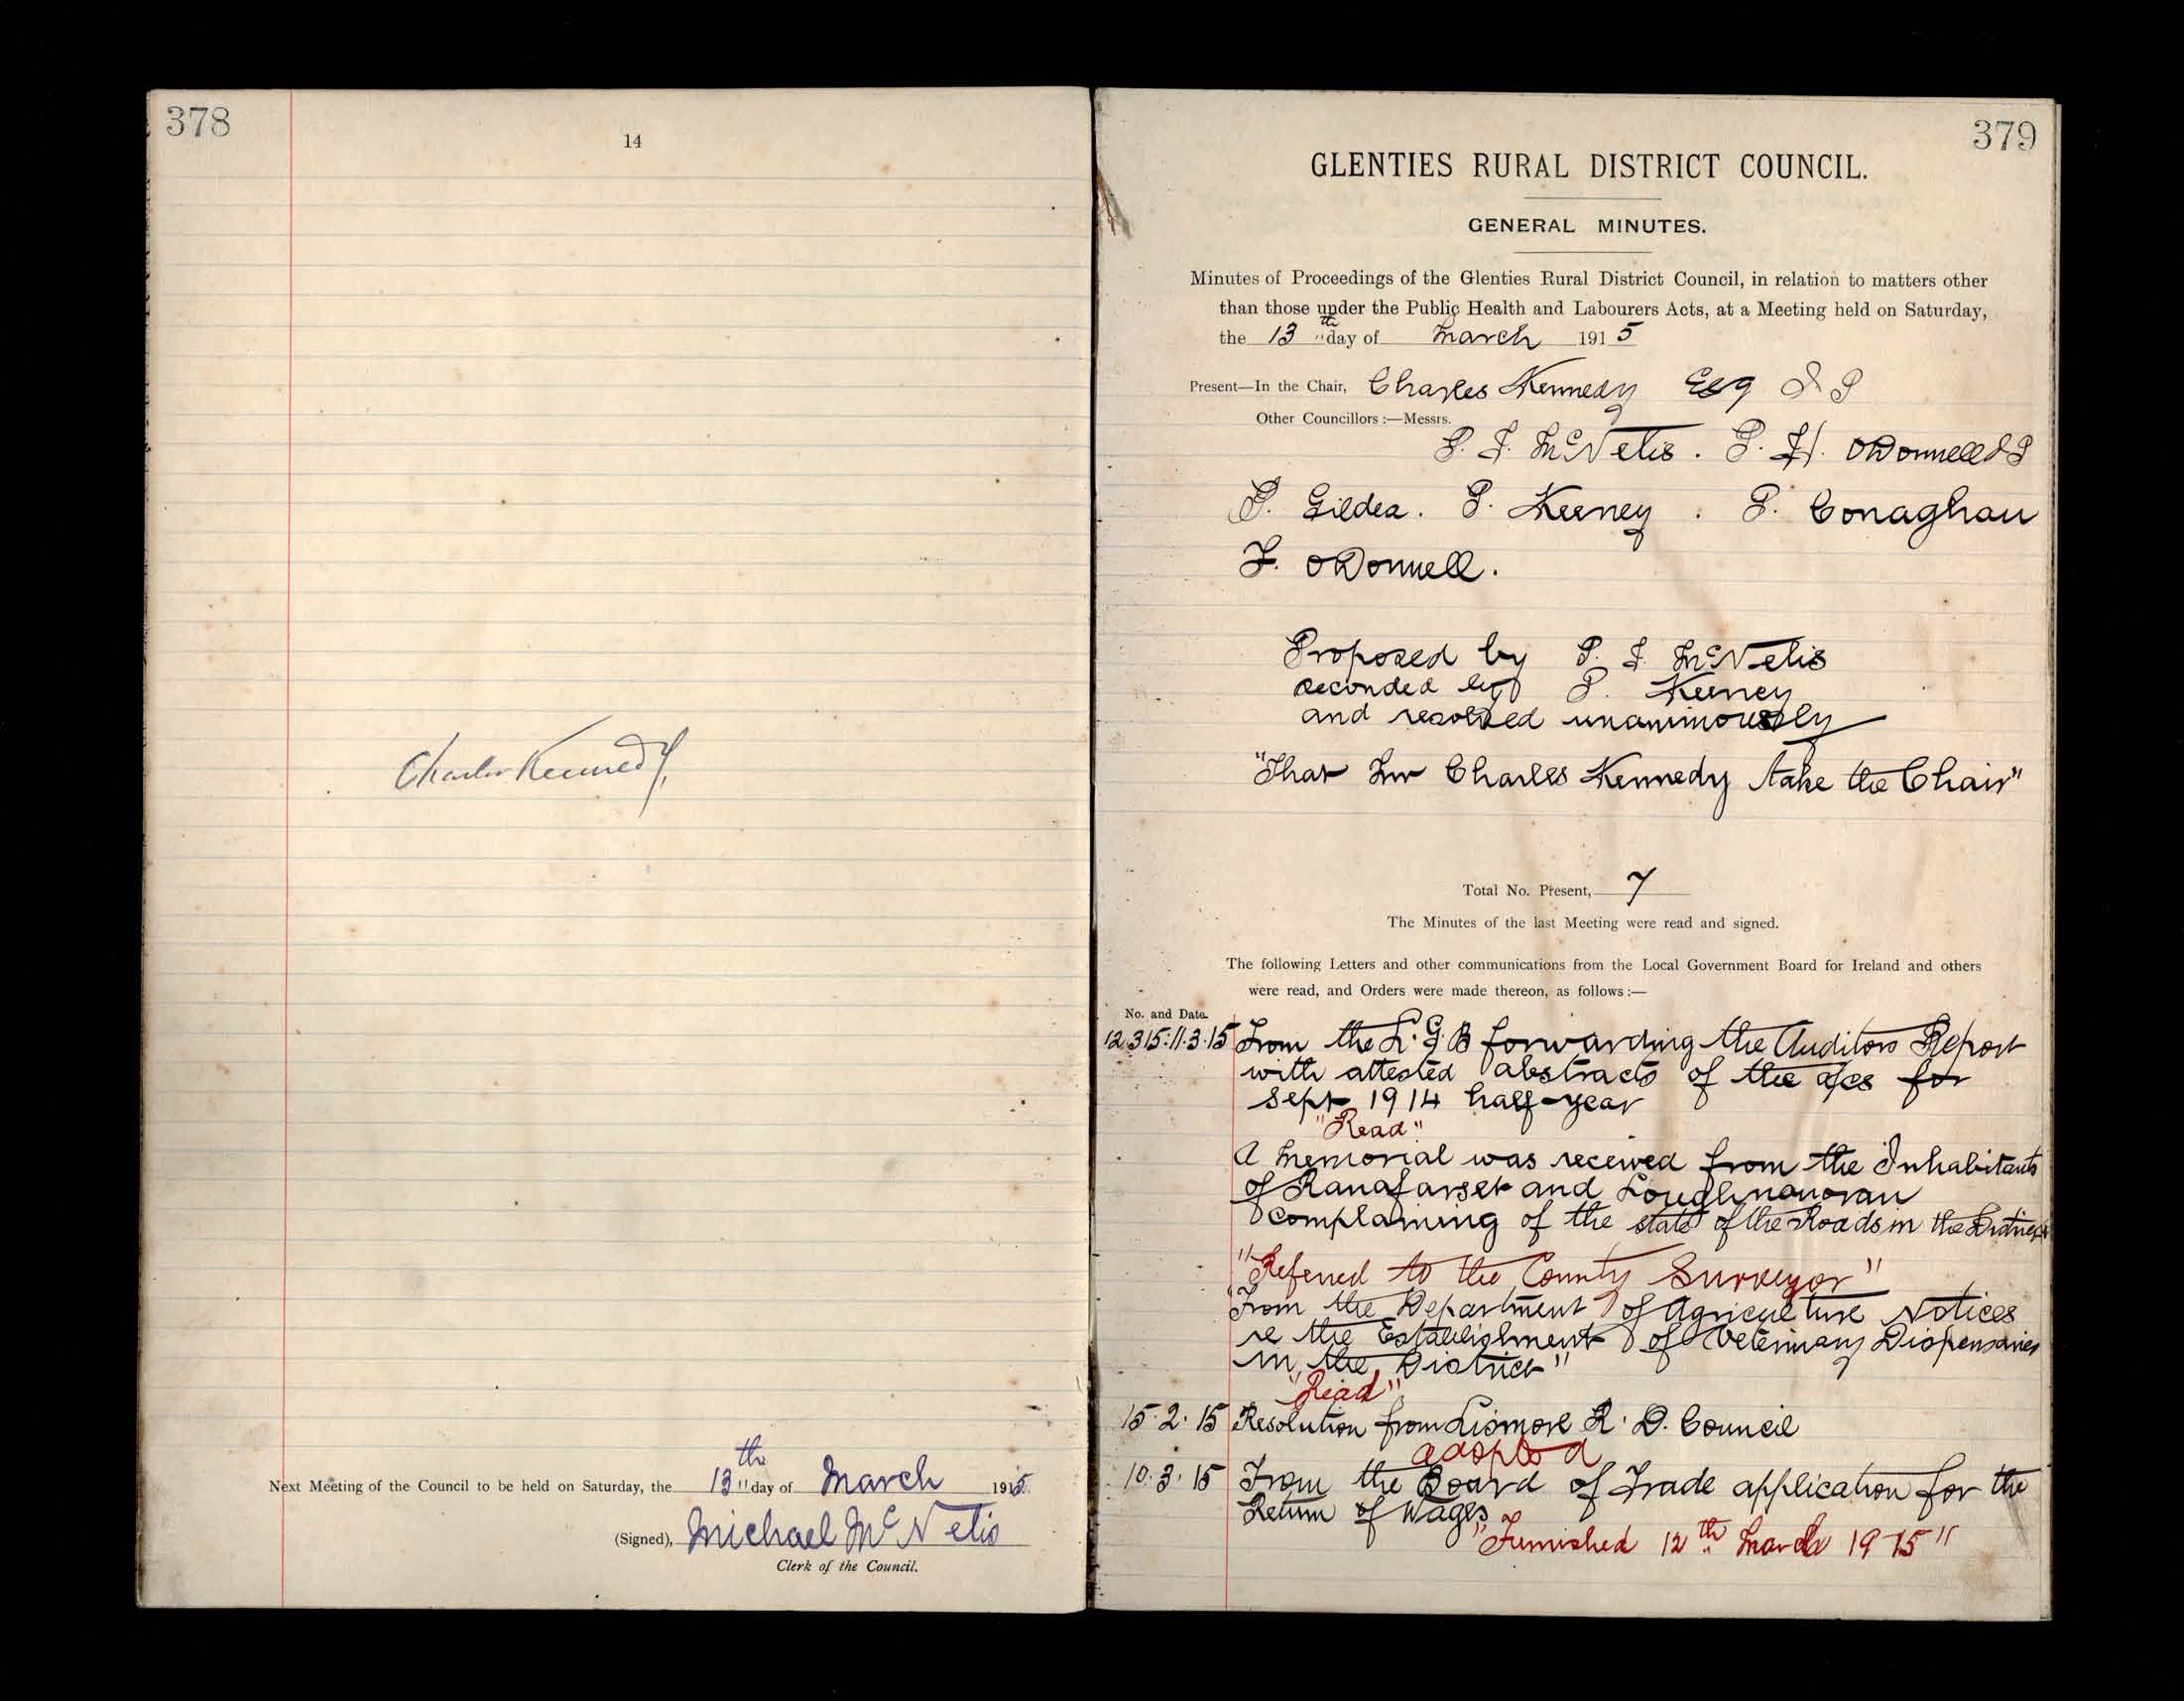 378
14
Charles Kennedy
Next Meeting of the Council to be held on Saturday, the 13th day of March 1915.
(Signed), Michael McNelis
Clerk of the Council.
379
GLENTIES RURAL DISTRICT COUNCIL.
GENERAL MINUTES.
Minutes of Proceedings of the Glenties Rural District Council, in relation to matters other
than those under the Public Health and Labourers Acts, at a Meeting held on Saturday,
the 13th day of March 1915
Present—In the Chair, Charles Kennedy Esq J P
Other Councillors :—Messrs.
P. J. McNelis. P. H. ODonnell J P
P. Gildea. P. Keeney. P. Conaghan
F. ODonnell.
Proposed by P. J. McNelis
seconded by P. Keeney
and resolved unanimously
"That Mr Charles Kennedy take the Chair"
Total No. Present, 7
The Minutes of the last Meeting were read and signed.
The following Letters and other communications from the Local Government Board for Ireland and others
were read, and Orders were made thereon, as follows :—
No. and Date.
12315:11.3.15 From the L.G.B forwarding the Auditors Report
with attested abstracts of the a/cs for
Sept 1914 half-year
"Read"
A Memorial was received from the Inhabitants
of Ranafarset and
complaining of the state of the Roads in the District
"Referred to the County Surveyor"
From the Department of Agriculture Notices
re the Establishment of Veterinary Dispensaries
in the District"
"Read"
15.2.15 Resolution from Lismore R. D. Council
adopted
10.3.15 From the Board of Trade application for the
Return of Wages
"Furnished 12th March 1915"